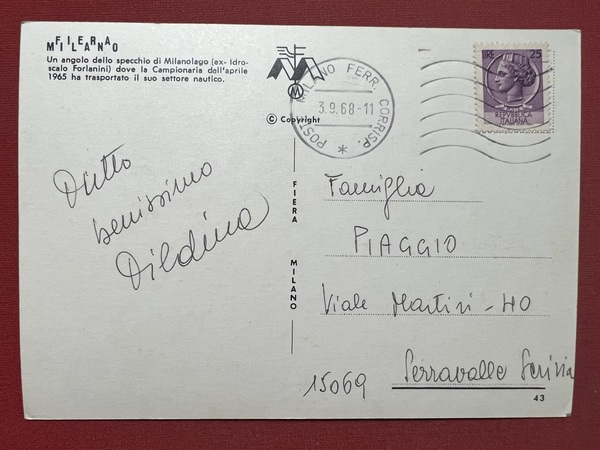 FIERA
MILANO
Un angolo dello specchio di Milanolago (ex- Idro-
scalo Forlanini) dove la Campionaria dall'aprile
1965 ha trasportato il suo settore nautico.
© Copyright
FIERA MILANO
MILANO FERR. CORRISP. POSTE
3.9.68-11
25
REPVBBLICA
ITALIANA
Tutto
benissimo
Famiglia
PIAGGIO
Viale Martiri - 40
15069 Serravalle Scrivia
43